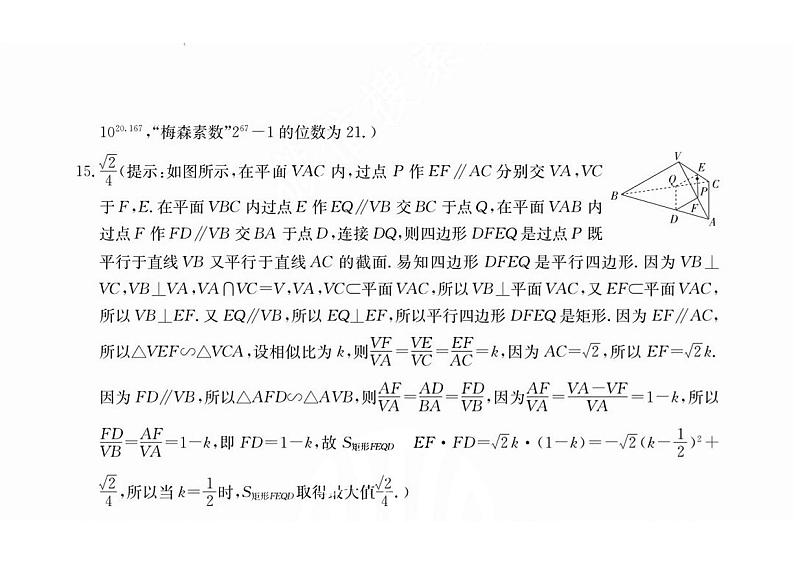 10^{20.167},“梅森素数”2^{67}-1 的位数为 21.)
15. \frac{\sqrt{2}}{4}(提示:如图所示,在平面 VAC 内,过点 P 作 EF∥AC 分别交 VA,VC
于 F,E. 在平面 VBC 内过点 E 作 EQ∥VB 交 BC 于点 Q,在平面 VAB 内
过点 F 作 FD∥VB 交 BA 于点 D,连接 DQ,则四边形 DFEQ 是过点 P 既
平行于直线 VB 又平行于直线 AC 的截面. 易知四边形 DFEQ 是平行四边形. 因为 VB⊥
VC,VB⊥VA,VA∩VC=V,VA,VC⊂平面 VAC,所以 VB⊥平面 VAC,又 EF⊂平面 VAC,
所以 VB⊥EF. 又 EQ∥VB,所以 EQ⊥EF,所以平行四边形 DFEQ 是矩形. 因为 EF∥AC,
所以△VEF∽△VCA,设相似比为 k,则\frac{VF}{VA}=\frac{VE}{VC}=\frac{EF}{AC}=k,因为 AC=\sqrt{2},所以 EF=\sqrt{2}k.
因为 FD∥VB,所以△AFD∽△AVB,则\frac{AF}{VA}=\frac{AD}{BA}=\frac{FD}{VB},因为\frac{AF}{VA}=\frac{VA-VF}{VA}=1-k,所以
\frac{FD}{VB}=\frac{AF}{VA}=1-k,即 FD=1-k,故 S_{矩形FEQD} EF·FD=\sqrt{2}k·(1-k)=-\sqrt{2}(k-\frac{1}{2})^2+
\frac{\sqrt{2}}{4},所以当 k=\frac{1}{2}时,S_{矩形FEQD}取得最大值\frac{\sqrt{2}}{4}.)
V
E
Q
C
B
P
F
D
A